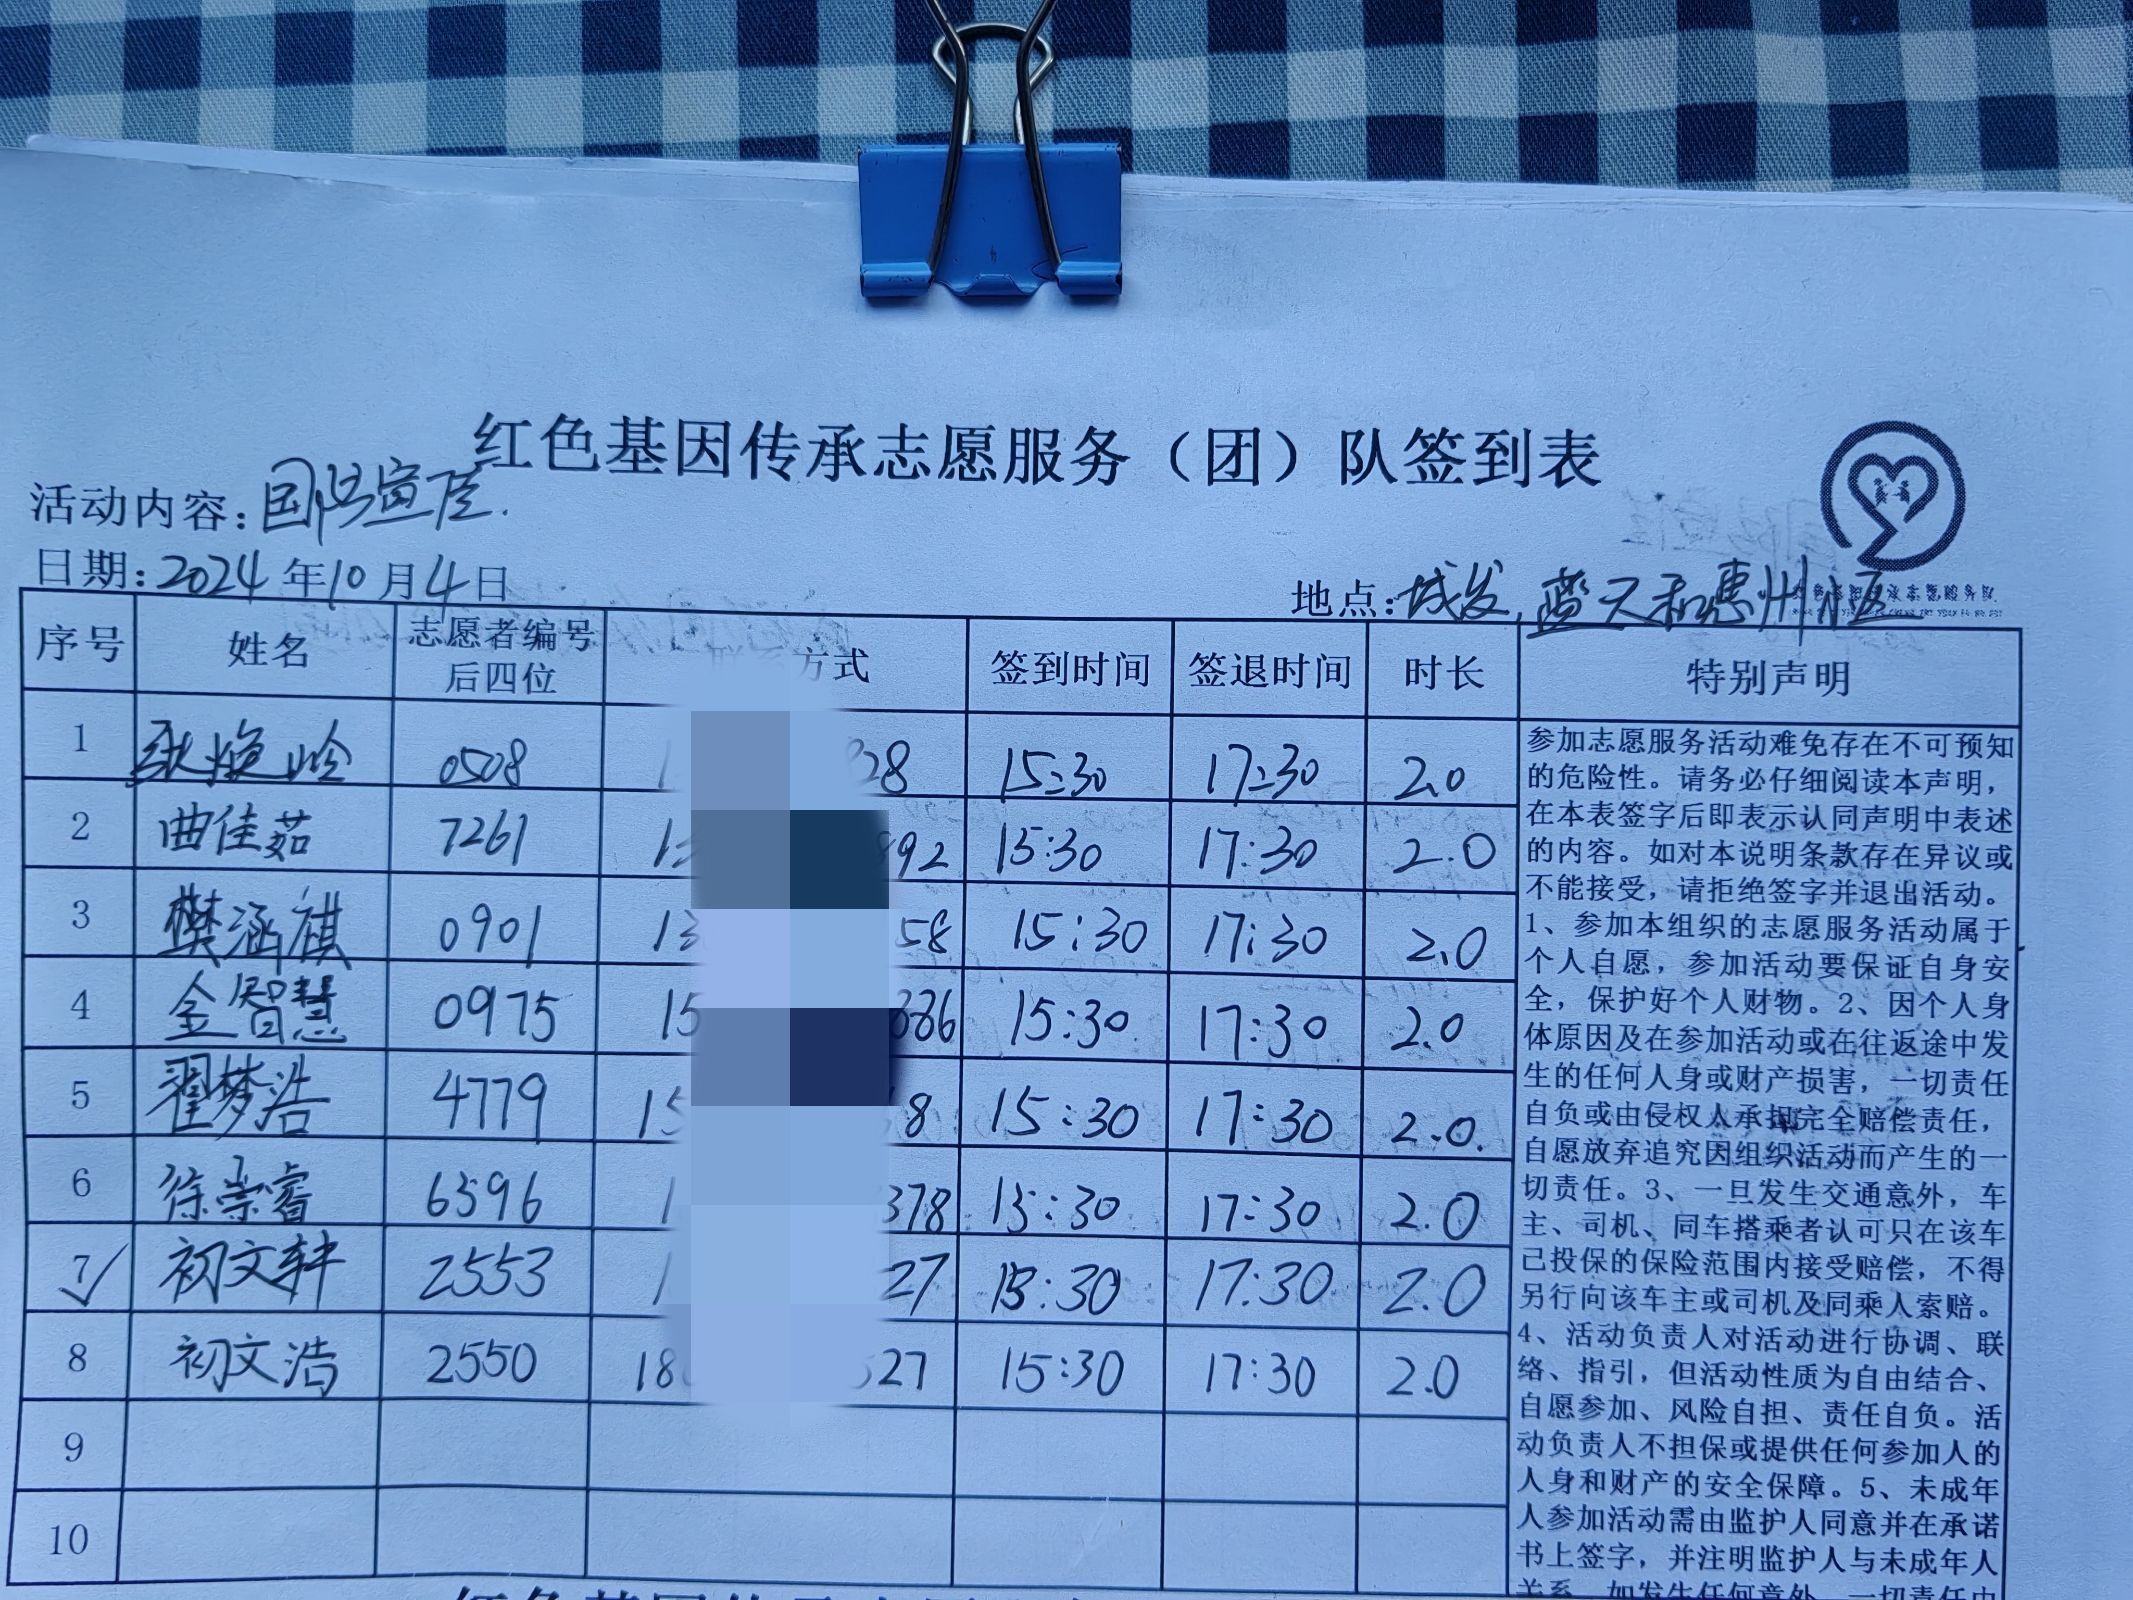 红色基因传承志愿服务（团）队签到表
活动内容：国防宣传.
日期：2024年10月4日
地点：城发,蓝天和惠州小区
序号 姓名 志愿者编号后四位 方式 签到时间 签退时间 时长 特别声明
1 0508 28 15:30 17:30 2.0
2 曲佳茹 7261 892 15:30 17:30 2.0
3 樊涵祺 0901 13 58 15:30 17:30 2.0
4 金智慧 0975 15 886 15:30 17:30 2.0
5 翟梦浩 4779 15 8 15:30 17:30 2.0.
6 徐崇睿 6596 1 378 15:30 17:30 2.0
7 初文轩 2553 1 27 15:30 17:30 2.0
8 初文浩 2550 18 527 15:30 17:30 2.0
9
10
参加志愿服务活动难免存在不可预知
的危险性。请务必仔细阅读本声明，
在本表签字后即表示认同声明中表述
的内容。如对本说明条款存在异议或
不能接受，请拒绝签字并退出活动。
1、参加本组织的志愿服务活动属于
个人自愿，参加活动要保证自身安
全，保护好个人财物。2、因个人身
体原因及在参加活动或在往返途中发
生的任何人身或财产损害，一切责任
自负或由侵权人承担完全赔偿责任，
自愿放弃追究因组织活动而产生的一
切责任。3、一旦发生交通意外，车
主、司机、同车搭乘者认可只在该车
已投保的保险范围内接受赔偿，不得
另行向该车主或司机及同乘人索赔。
4、活动负责人对活动进行协调、联
络、指引，但活动性质为自由结合、
自愿参加、风险自担、责任自负。活
动负责人不担保或提供任何参加人的
人身和财产的安全保障。5、未成年
人参加活动需由监护人同意并在承诺
书上签字，并注明监护人与未成年人
关系，如发生任何意外，一切责任由